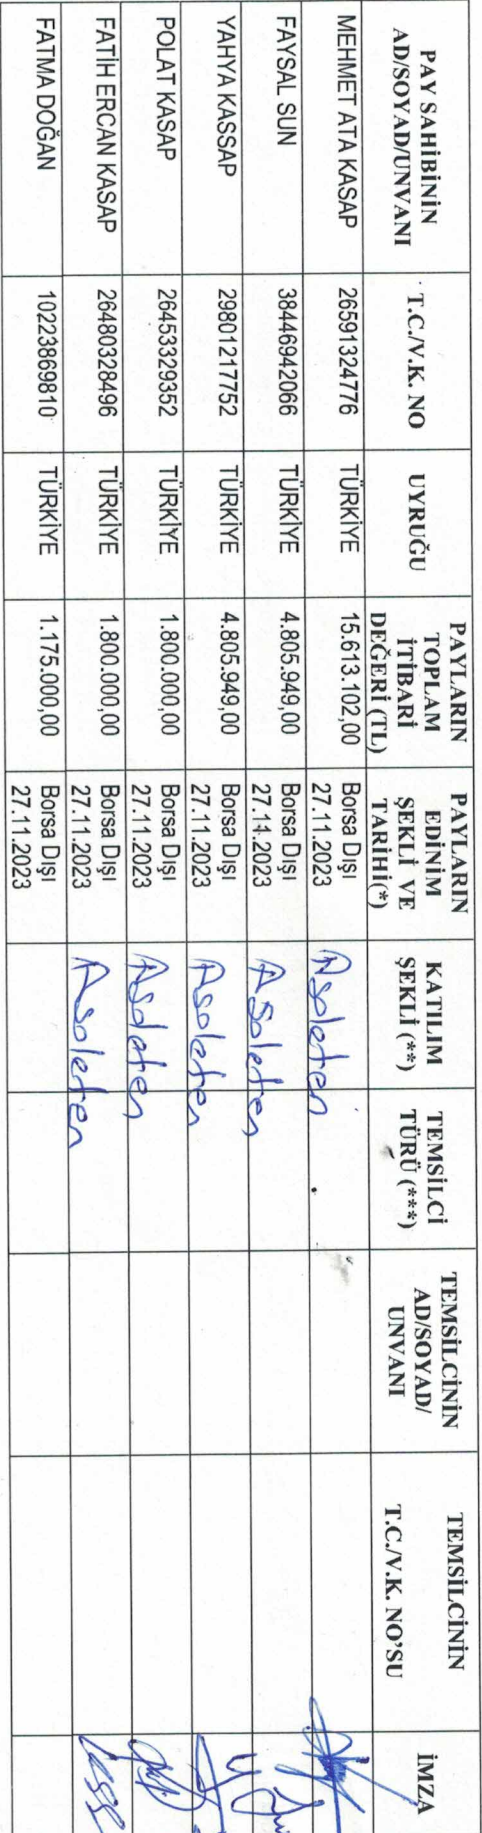 PAY SAHİBİNİN AD/SOYAD/UNVANI T.C./V.K. NO UYRUĞU PAYLARIN TOPLAM İTİBARİ DEĞERİ (TL) PAYLARIN EDİNİM ŞEKLİ VE TARİHİ(*) KATILIM ŞEKLİ (**) TEMSİLCİ TÜRÜ (***) TEMSİLCİNİN AD/SOYAD/ UNVANI TEMSİLCİNİN T.C./V.K. NO'SU İMZA
MEHMET ATA KASAP 26591324776 TÜRKİYE 15.613.102,00 Borsa Dışı 27.11.2023 Asaleten
FAYSAL SUN 38446942066 TÜRKİYE 4.805.949,00 Borsa Dışı 27.11.2023 Asaleten
YAHYA KASSAP 29801217752 TÜRKİYE 4.805.949,00 Borsa Dışı 27.11.2023 Asaleten
POLAT KASAP 26453329352 TÜRKİYE 1.800.000,00 Borsa Dışı 27.11.2023 Asaleten
FATİH ERCAN KASAP 26480328496 TÜRKİYE 1.800.000,00 Borsa Dışı 27.11.2023 Asaleten
FATMA DOĞAN 10223869810 TÜRKİYE 1.175.000,00 Borsa Dışı 27.11.2023